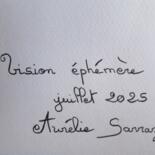 Vision éphémère
juillet 2025
Aurélie